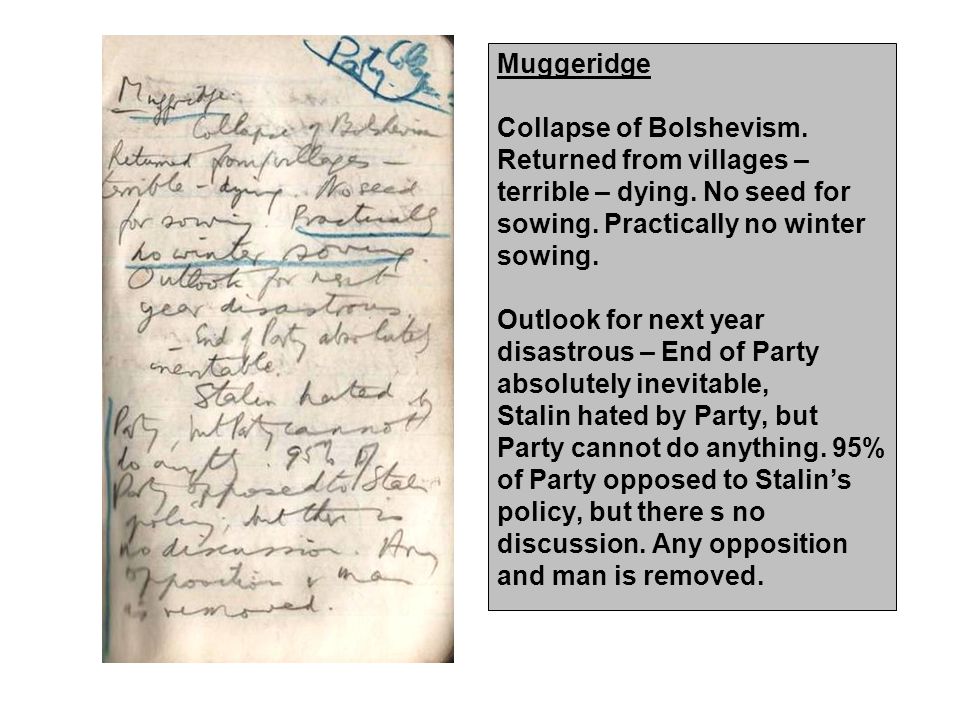 Party Collapse
Muggeridge.
Collapse of Bolshevism
Returned from villages –
terrible – dying. No seed
for sowing. Practically
no winter sowing.
Outlook for next
year disastrous.
– End of Party absolutely
inevitable.
Stalin hated by
Party, but Party cannot
do anythg. 95% of
Party opposed to Stalin
policy, but there is
no discussion. Any
opposition & man
is removed.
Muggeridge
Collapse of Bolshevism.
Returned from villages –
terrible – dying. No seed for
sowing. Practically no winter
sowing.
Outlook for next year
disastrous – End of Party
absolutely inevitable,
Stalin hated by Party, but
Party cannot do anything. 95%
of Party opposed to Stalin’s
policy, but there s no
discussion. Any opposition
and man is removed.